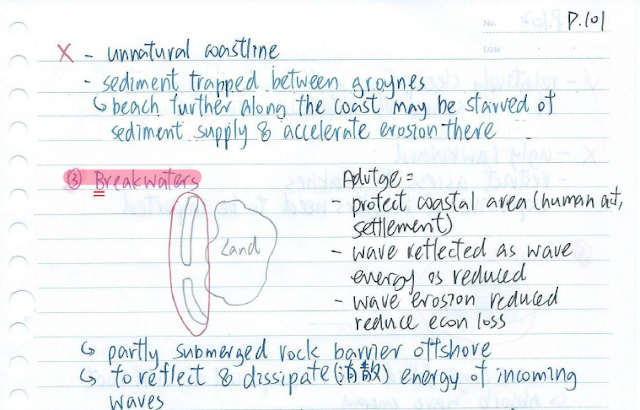 No.
P.101
Date
X - unnatural coastline
- sediment trapped between groynes
↳ beach further along the coast may be starved of
sediment supply & accelerate erosion there
③ Breakwaters
Land
Advtge =
- protect coastal area (human act,
settlement)
- wave reflected as wave
energy is reduced
- wave erosion reduced
reduce econ loss
↳ partly submerged rock barrier offshore
↳ to reflect & dissipate (消散) energy of incoming
waves